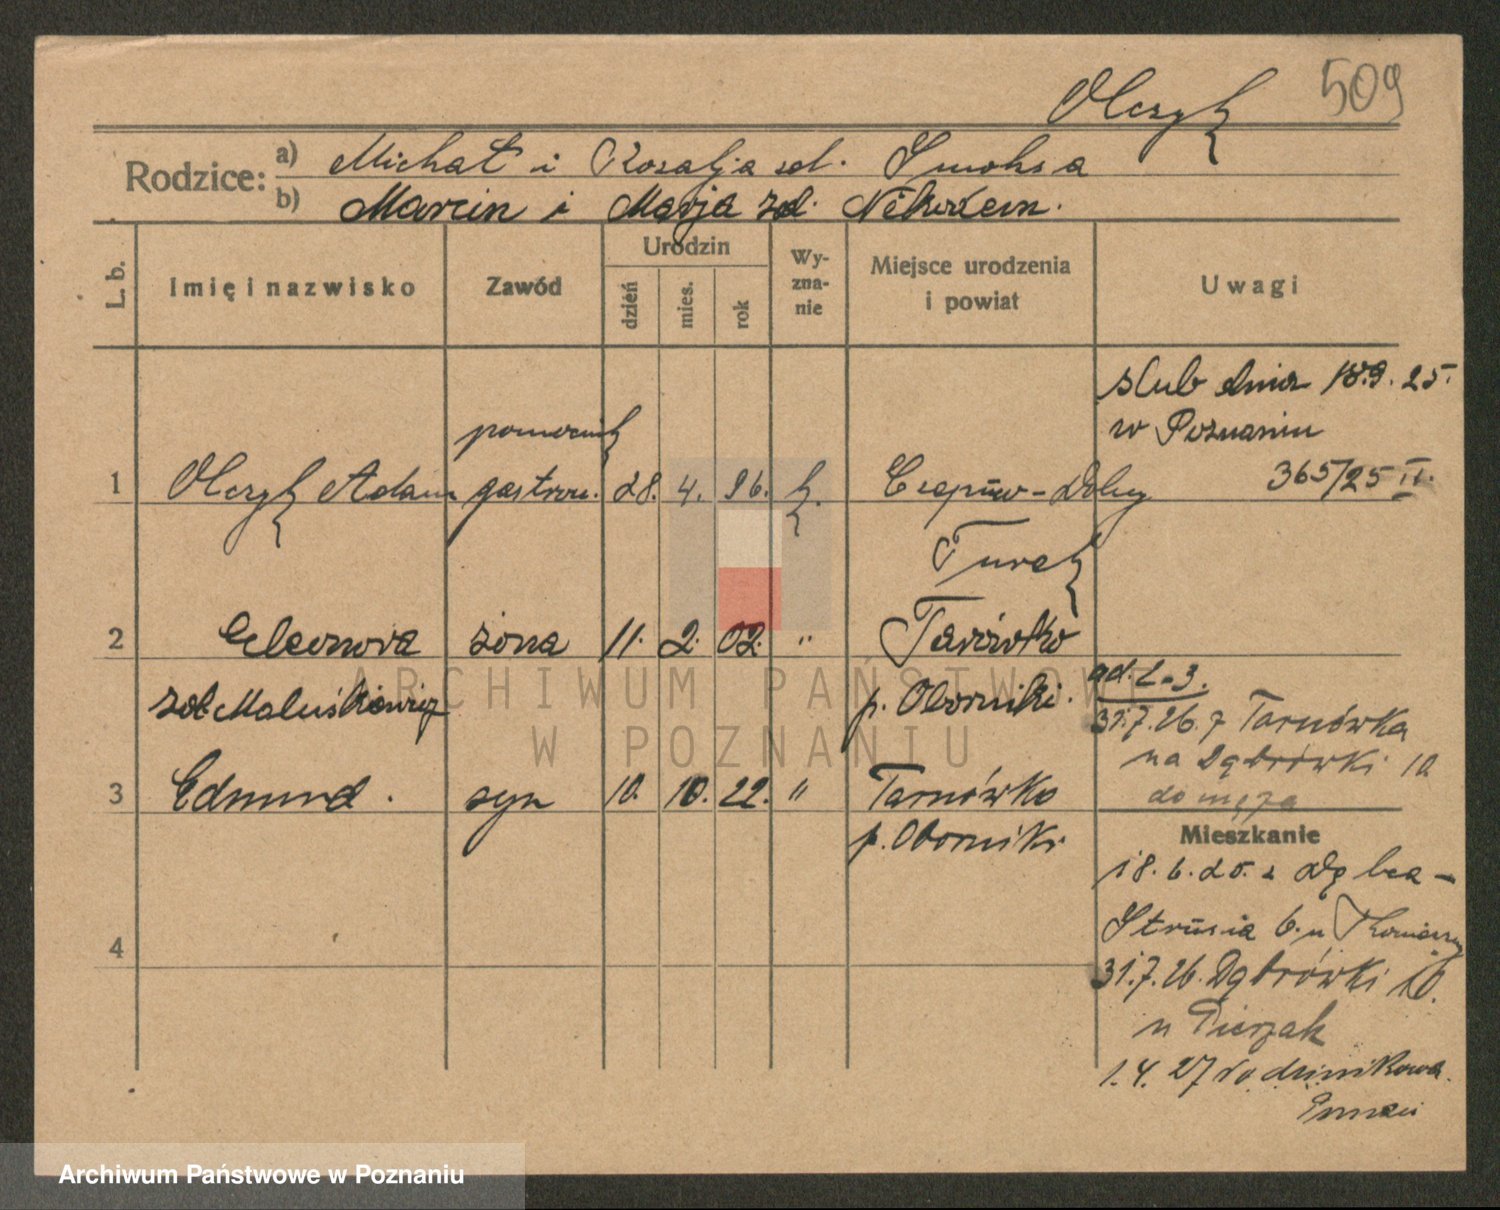 509
Olczyk
Rodzice:
a) Michał i Rozalja zd. Smolna
b) Marcin i Marja zd.
L. b.
Imię i nazwisko
Zawód
Urodzin
dzień
mies.
rok
Wy-
zna-
nie
Miejsce urodzenia
i powiat
Uwagi
ślub dnia 18.9.25.
w Poznaniu
365/25 II.
pomocnik
1 Olczyk Adam gastron. 28. 4. 96. k. Czepów-Dolny
Turek
2 Eleonora żona 11. 2. 02. " Tarnówko
zd. Maluśkiewicz p. Oborniki.
ad. 2-3.
31.7.26. z Tarnówka
na Dąbrówki 10
do męża
3 Edmund. syn 10. 10. 22. " Tarnówko
p. Oborniki
Mieszkanie
18.6.25. z Dębca -
Strusia 6. u
4
31.7.26. Dąbrówki 10.
u Pierzak
1.4.27
ARCHIWUM PAŃSTWOWE
W POZNANIU
Archiwum Państwowe w Poznaniu